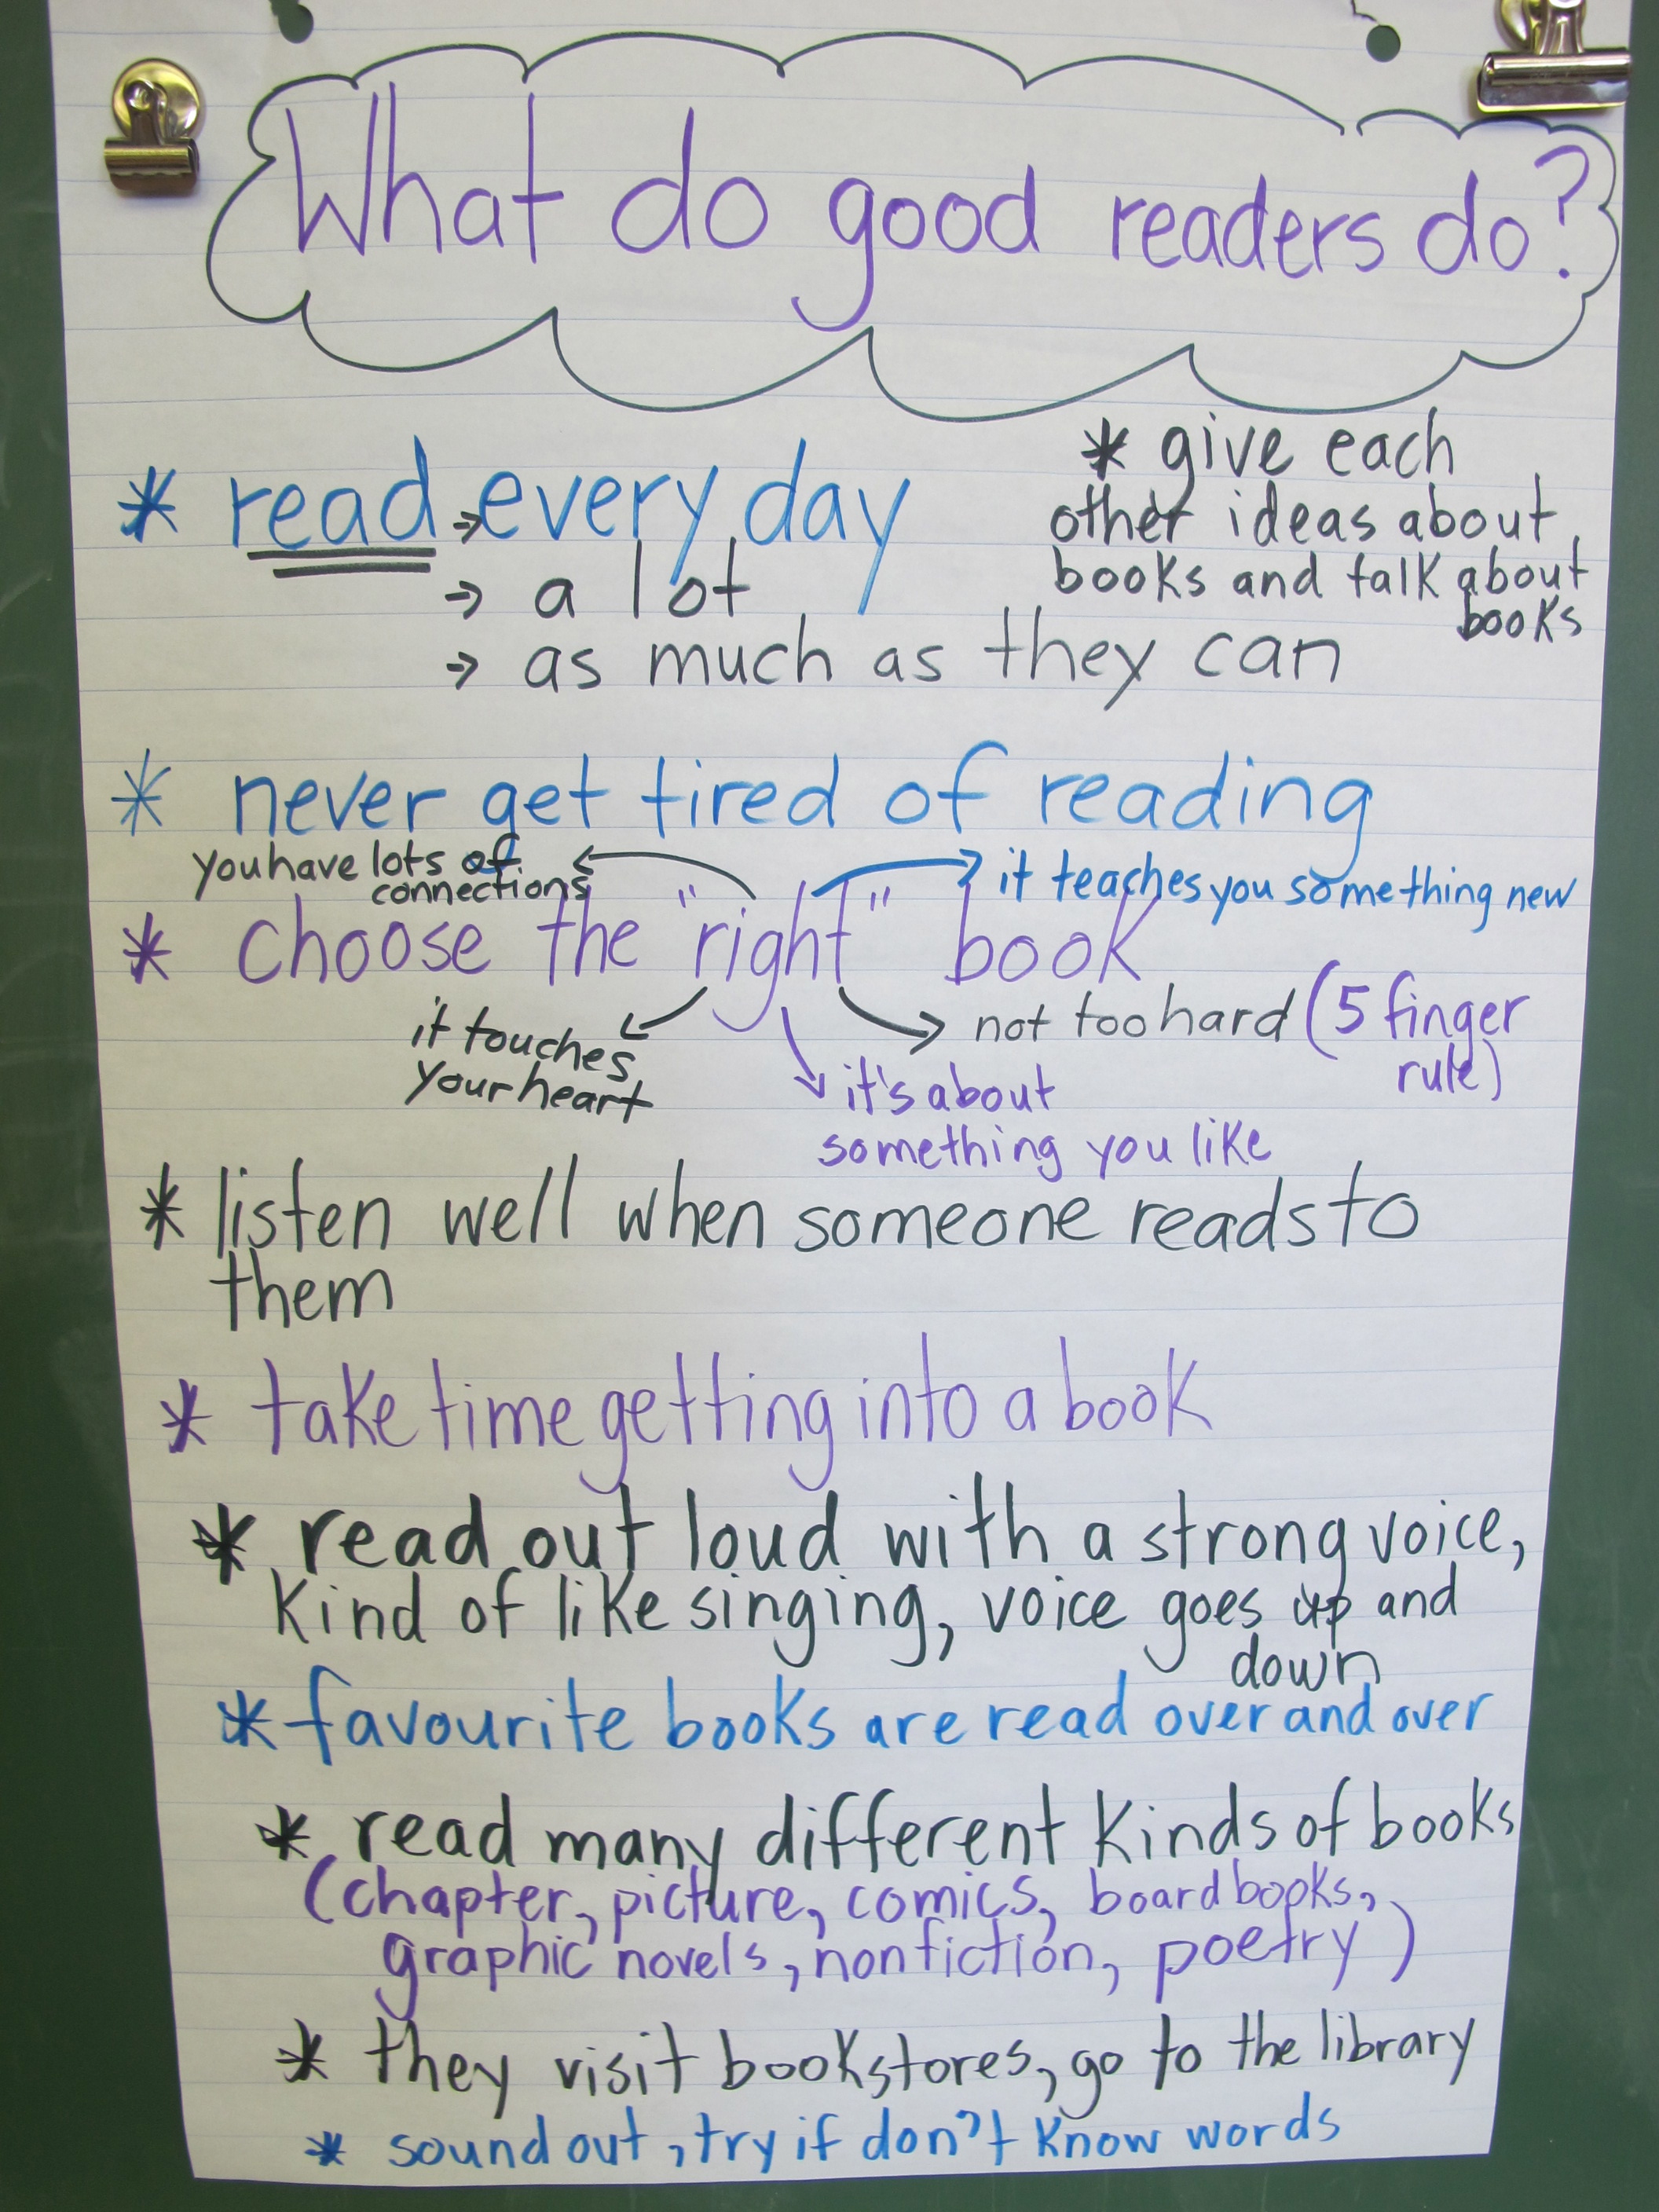 What do good readers do?
* read → every day
→ a lot
→ as much as they can
* give each
other ideas about
books and talk about
books
* never get tired of reading
you have lots of
connections
it teaches you something new
* choose the "right" book
it touches
your heart
it's about
something you like
not too hard (5 finger
rule)
* listen well when someone reads to
them
* take time getting into a book
* read out loud with a strong voice,
kind of like singing, voice goes up and
down
* favourite books are read over and over
* read many different kinds of books
(chapter, picture, comics, board books,
graphic novels, nonfiction, poetry)
* they visit bookstores, go to the library
* sound out, try if don't know words